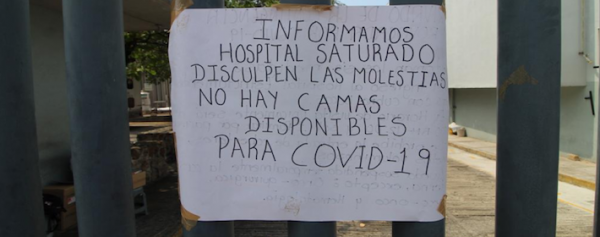 INFORMAMOS
HOSPITAL SATURADO
DISCULPEN LAS MOLESTIAS
NO HAY CAMAS
DISPONIBLES
PARA COVID-19